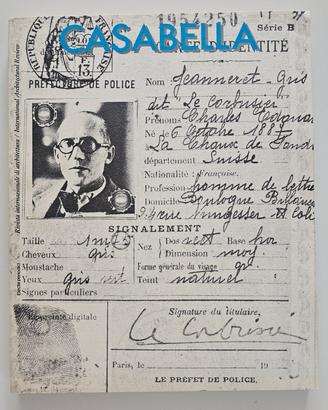 1954250
Série B
CASABELLA
D'IDENTITÉ
RÉPUBLIQUE FRANÇAISE
13
PRÉFECTURE DE POLICE
Rivista internazionale di architettura / International Architectural Review
Nom Jeanneret-gris
dit "Le Corbusier"
Prénoms Charles
Né le 6 Octobre 1887
La Chaux de Fonds
département Suisse
Nationalité : Française.
Profession homme de lettre
Domicile Boulogne
24 rue nungesser et Coli
SIGNALEMENT
Taille 1m75
Cheveux gris
Moustache
Yeux gris vert
Signes particuliers
Nez Dos rect. Base hor
Dimension moy
Forme générale du visage
Teint naturel
Empreinte digitale
Signature du titulaire,
Le Corbusier
Paris, le 19
LE PRÉFET DE POLICE,